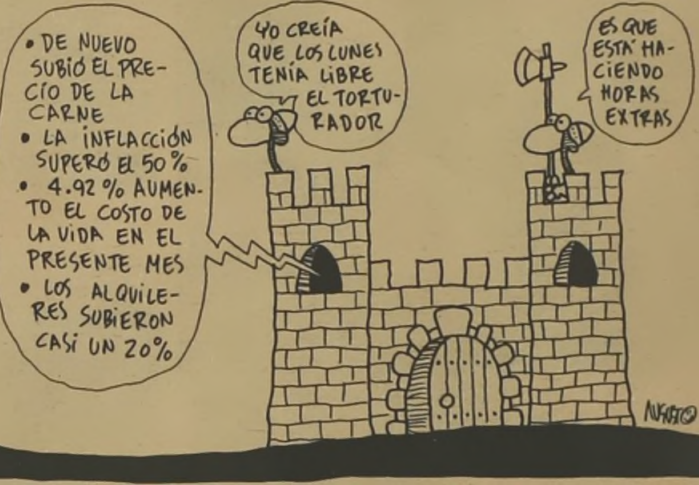 • DE NUEVO
SUBIÓ EL PRE-
CIO DE LA
CARNE
• LA INFLACCIÓN
SUPERÓ EL 50%
• 4.92% AUMEN-
TO EL COSTO DE
LA VIDA EN EL
PRESENTE MES
• LOS ALQUILE-
RES SUBIERON
CASI UN 20%
YO CREÍA
QUE LOS LUNES
TENÍA LIBRE
EL TORTU-
RADOR
ES QUE
ESTÁ HA-
CIENDO
HORAS
EXTRAS
AUGUSTO